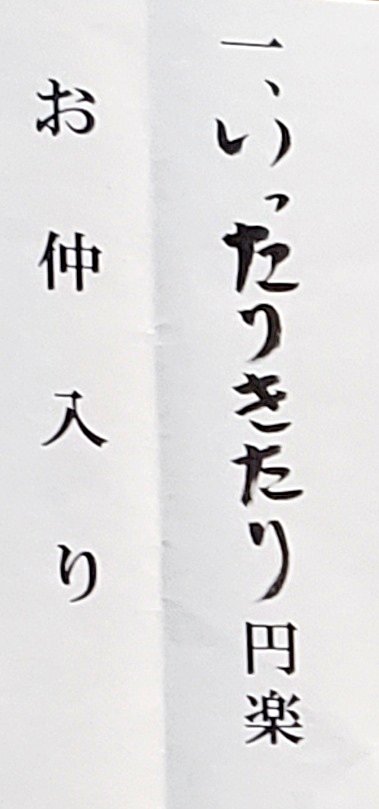 一、いったりきたり円楽
お仲入り